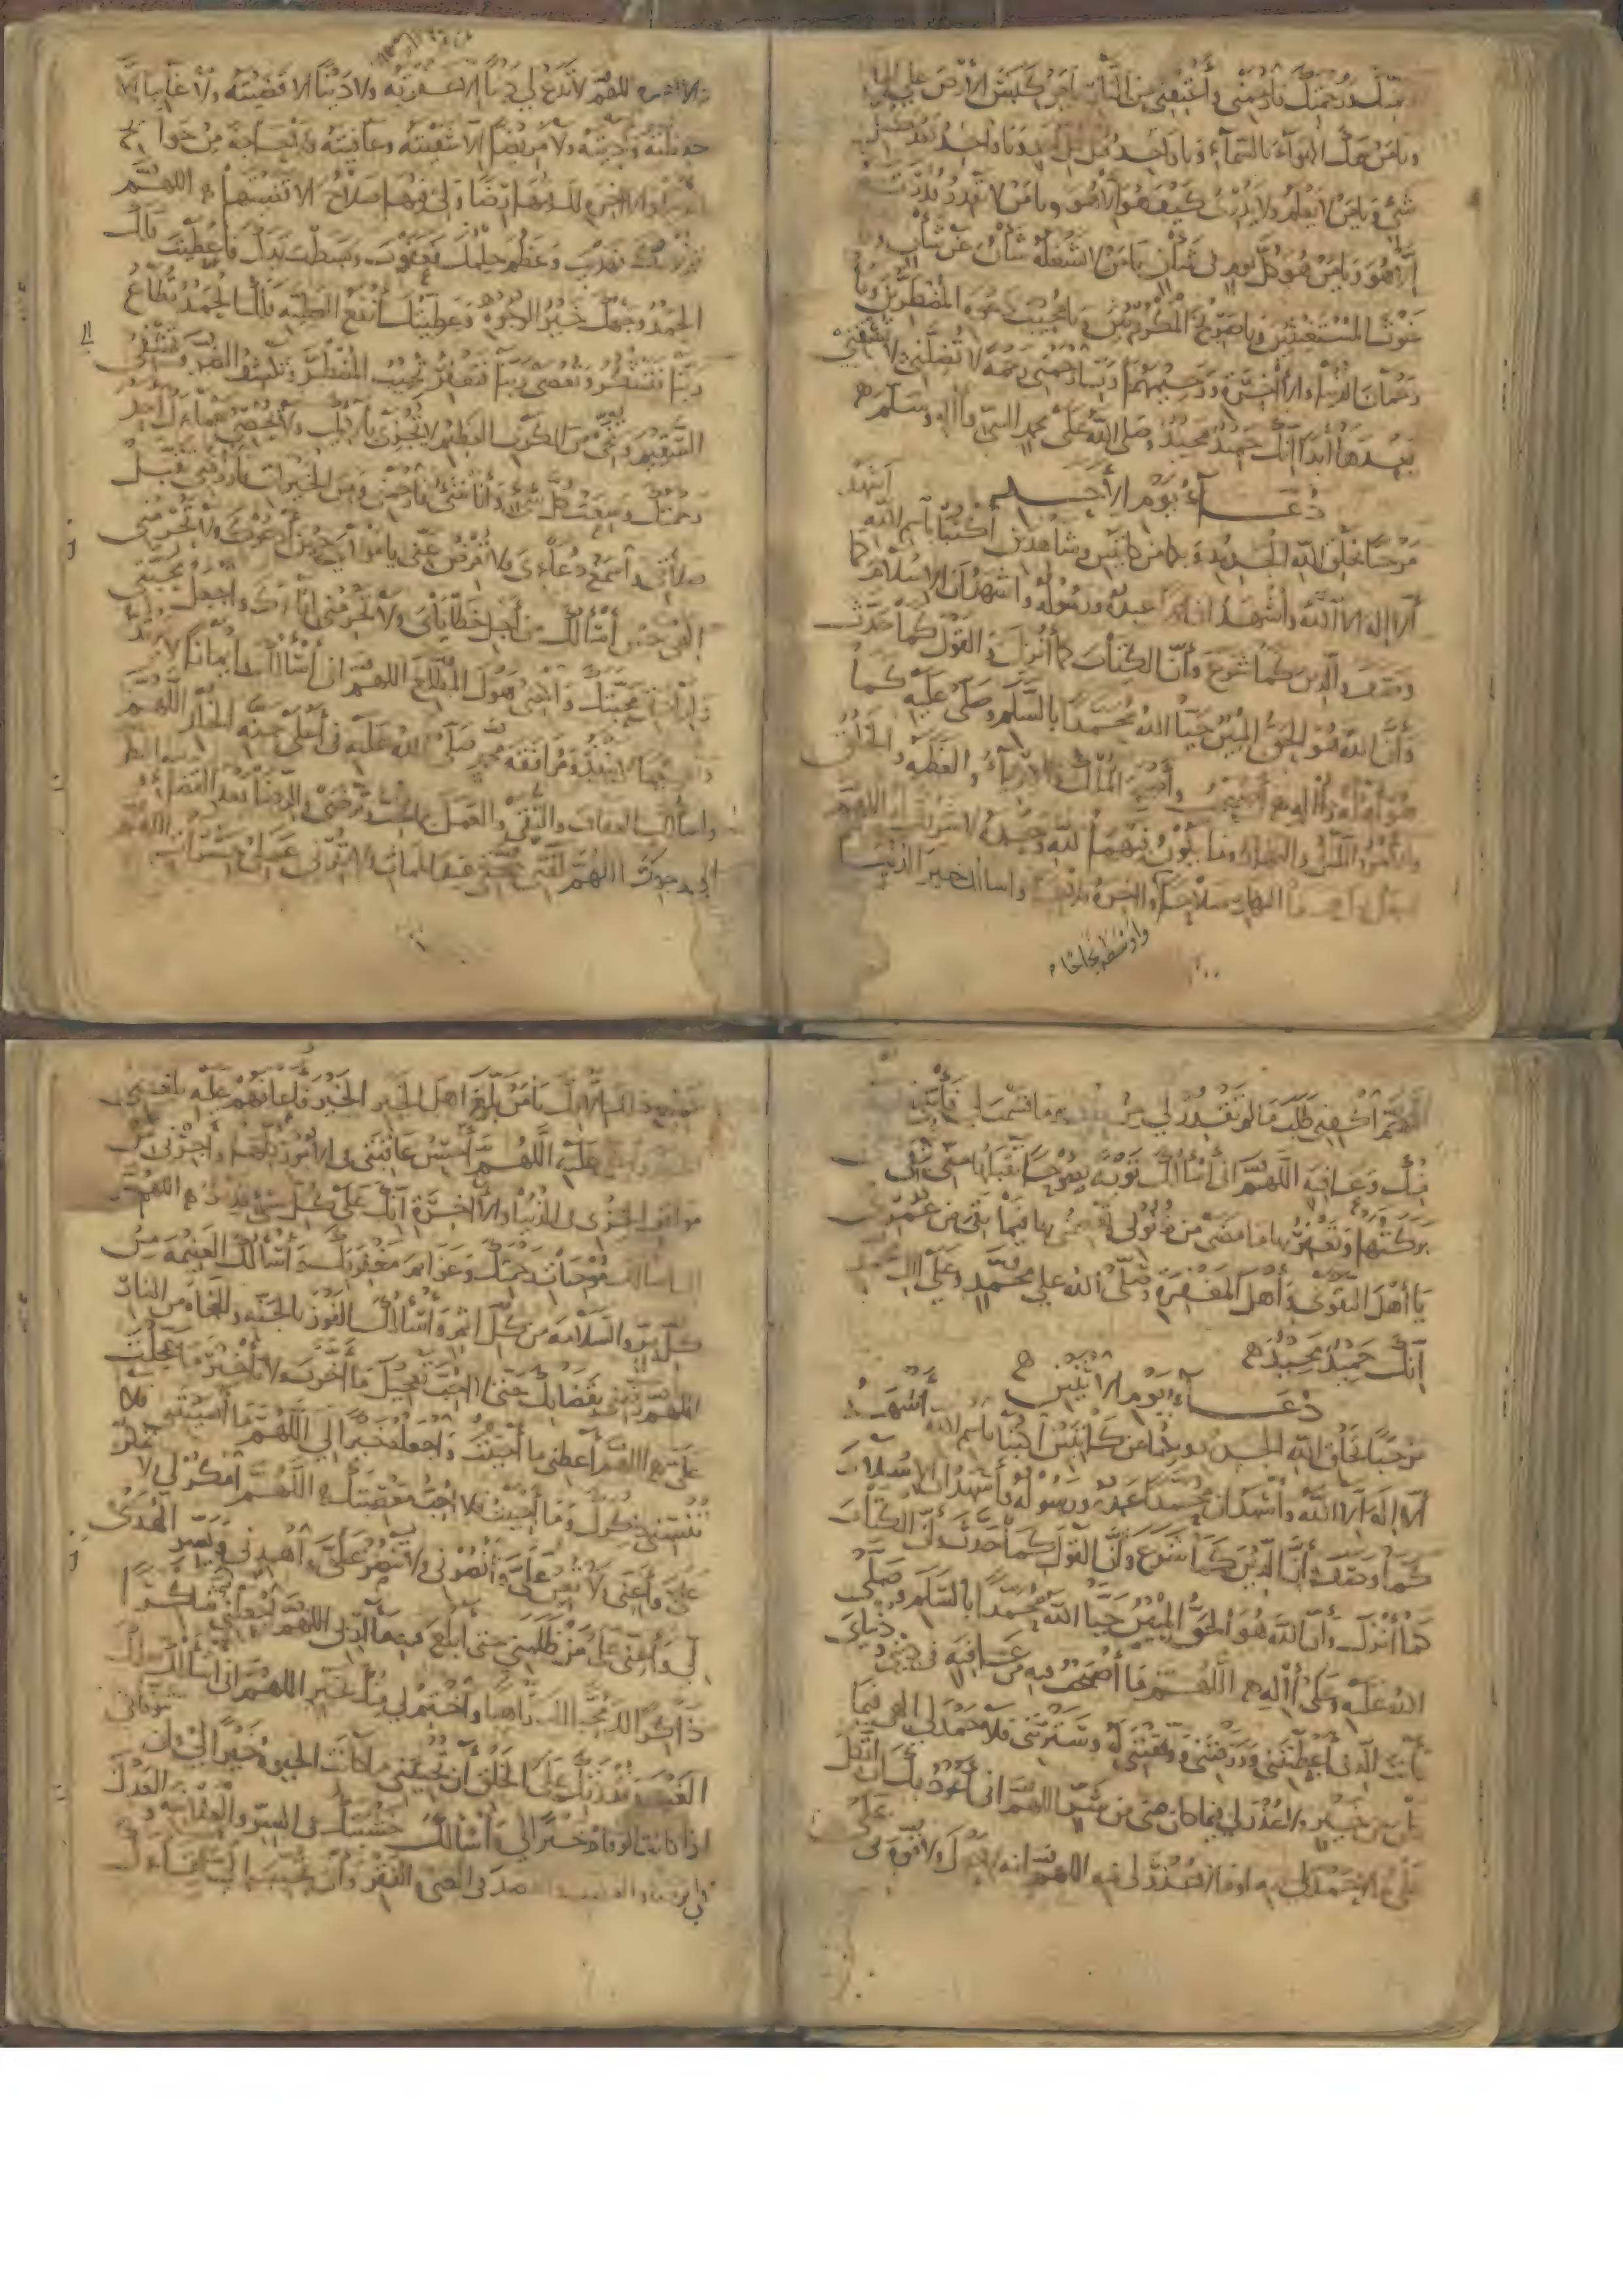 برحمتك فارحمني وأعتقني من النار يا من كبس الأرض على الماء
ويا من سمك الهواء بالسماء ويا واحد قبل كل أحد ويا واحد بعد كل
شيء ويا من لا يعلم ولا يدري كيف هو إلا هو ويا من لا يقدر قدرته
إلا هو ويا من هو كل يوم في شأن يا من لا يشغله شأن عن شأن ويا
غوث المستغيثين ويا صريخ المكروبين ويا مجيب دعوة المضطرين ويا
رحمان الدنيا والآخرة ورحيمهما رب ارحمني رحمة لا تضلني ولا تشقني
بعدها أبدا إنك حميد مجيد وصلى الله على محمد النبي وآله وسلم
دعاء يوم الأحد
مرحبا بخلق الله الجديد وبكما من كاتبين وشاهدين اكتبا بسم الله أشهد
ألا إله إلا الله وأشهد أن محمدا عبده ورسوله وأشهد أن الإسلام كما
وصف والدين كما شرع وأن الكتاب كما أنزل والقول كما حدث
وأن الله هو الحق المبين حيا الله محمدا بالسلام وصلى عليه كما
هو أهله وآله أصبحت وأصبح الملك والكبرياء والعظمة والخلق
والأمر والليل والنهار وما يكون فيهما لله وحده لا شريك له اللهم
اجعل أول هذا النهار صلاحا وآخره فلاحا وأسألك خير الدنيا
وأوسطه نجاحا
والآخرة اللهم لا تدع لي ذنبا إلا غفرته ولا دينا إلا قضيته ولا غائبا إلا
حفظته وأديته ولا مريضا إلا شفيته وعافيته ولا حاجة من حوائج
الدنيا والآخرة لك فيها رضا ولي فيها صلاح إلا قضيتها اللهم
نورك فهديت وعظم حلمك فعفوت وبسطت يدك فأعطيت فلك
الحمد وجهك خير الوجوه وعطيتك أنفع العطية فلك الحمد تطاع
ربنا فتشكر وتعصى ربنا فتغفر تجيب المضطر وتكشف الضر وتشفي
السقيم وتنجي من الكرب العظيم لا يجزي بآلائك ولا يحصي نعماءك أحد
رحمتك وسعت كل شيء وأنا شيء فارحمني ومن الخيرات فارزقني تقبل
صلاتي واسمع دعائي ولا تعرض عني يا مولاي حين أدعوك ولا تحرمني
إلهي حين أسألك من أجل خطاياي ولا تحرمني لقاءك واجعل محبتي
وإرادتي محبتك واكفني هول المطلع اللهم إني أسألك إيمانا لا يرتد
ونعيما لا ينفد ومرافقة محمد صلى الله عليه في أعلى جنة الخلد اللهم
وأسألك العفاف والتقى والعمل بما تحب وترضى والرضا بعد القضاء والنظر
إلى وجهك اللهم لقني حجتي عند الممات ولا ترني عملي حسرات اللهم
اللهم اكفني طلب ما لم تقدر لي من وما قسمت لي فأتني
منك وعافية اللهم إني أسألك توبة نصوحا تقبلها مني تبقى
بركتها وتغفر بها ما مضى من ذنوبي تعصمني بها فيما بقي من عمري
يا أهل التقوى وأهل المغفرة وصلى الله على محمد وعلى آل محمد
إنك حميد مجيد
دعاء يوم الاثنين
مرحبا بخلق الله الجديد وبكما من كاتبين اكتبا بسم الله أشهد
ألا إله إلا الله وأشهد أن محمدا عبده ورسوله وأشهد أن الإسلام
كما وصف وأن الدين كما شرع وأن القول كما حدث وأن الكتاب
كما أنزل وأن الله هو الحق المبين حيا الله محمدا بالسلام وصلى
الله عليه وعلى آله اللهم ما أصبحت فيه من عافية في ديني ودنياي
فأنت الذي أعطيتني ورزقتني ووفقتني له وسترتني فلا حمد لي إلهي فيما
كان من خير ولا عذر لي فيما كان مني من شر اللهم إني أعوذ بك أن أتكل
على ما لا حمد لي فيه أو ما لا عذر لي فيه اللهم إنه لا حول ولا قوة لي على
جميع ذلك إلا بك يا من بلغ أهل الخير الخير وأعانهم عليه بلغني
عليه اللهم أحسن عاقبتي في الأمور كلها وأجرني من
مواقف الخزي في الدنيا والآخرة إنك على كل شيء قدير اللهم
أسألك موجبات رحمتك وعزائم مغفرتك وأسألك الغنيمة من
كل بر والسلامة من كل إثم وأسألك الفوز بالجنة والنجاة من النار
اللهم رضني بقضائك حتى لا أحب تعجيل ما أخرت ولا تأخير ما عجلت
علي اللهم أعطني ما أحببت واجعله خيرا لي اللهم ما أنسيتني فلا
تنسني ذكرك وما أحببت فلا أحب معصيتك اللهم امكر لي ولا تمكر
علي وأعني ولا تعن علي وانصرني ولا تنصر علي واهدني ويسر الهدى
لي وأعني على من ظلمني حتى أبلغ فيه مآربي اللهم اجعلني شاكرا
ذاكرا لك محبا لك راهبا واختم لي منك بخير اللهم إني أسألك بعلمك
الغيب وقدرتك على الخلق أن تحييني ما كانت الحيوة خيرا لي وأن تتوفاني
إذا كانت الوفاة خيرا لي وأسألك خشيتك في السر والعلانية والعدل
في الرضا والغضب والقصد في الغنى والفقر وأن تحبب إلي لقاءك